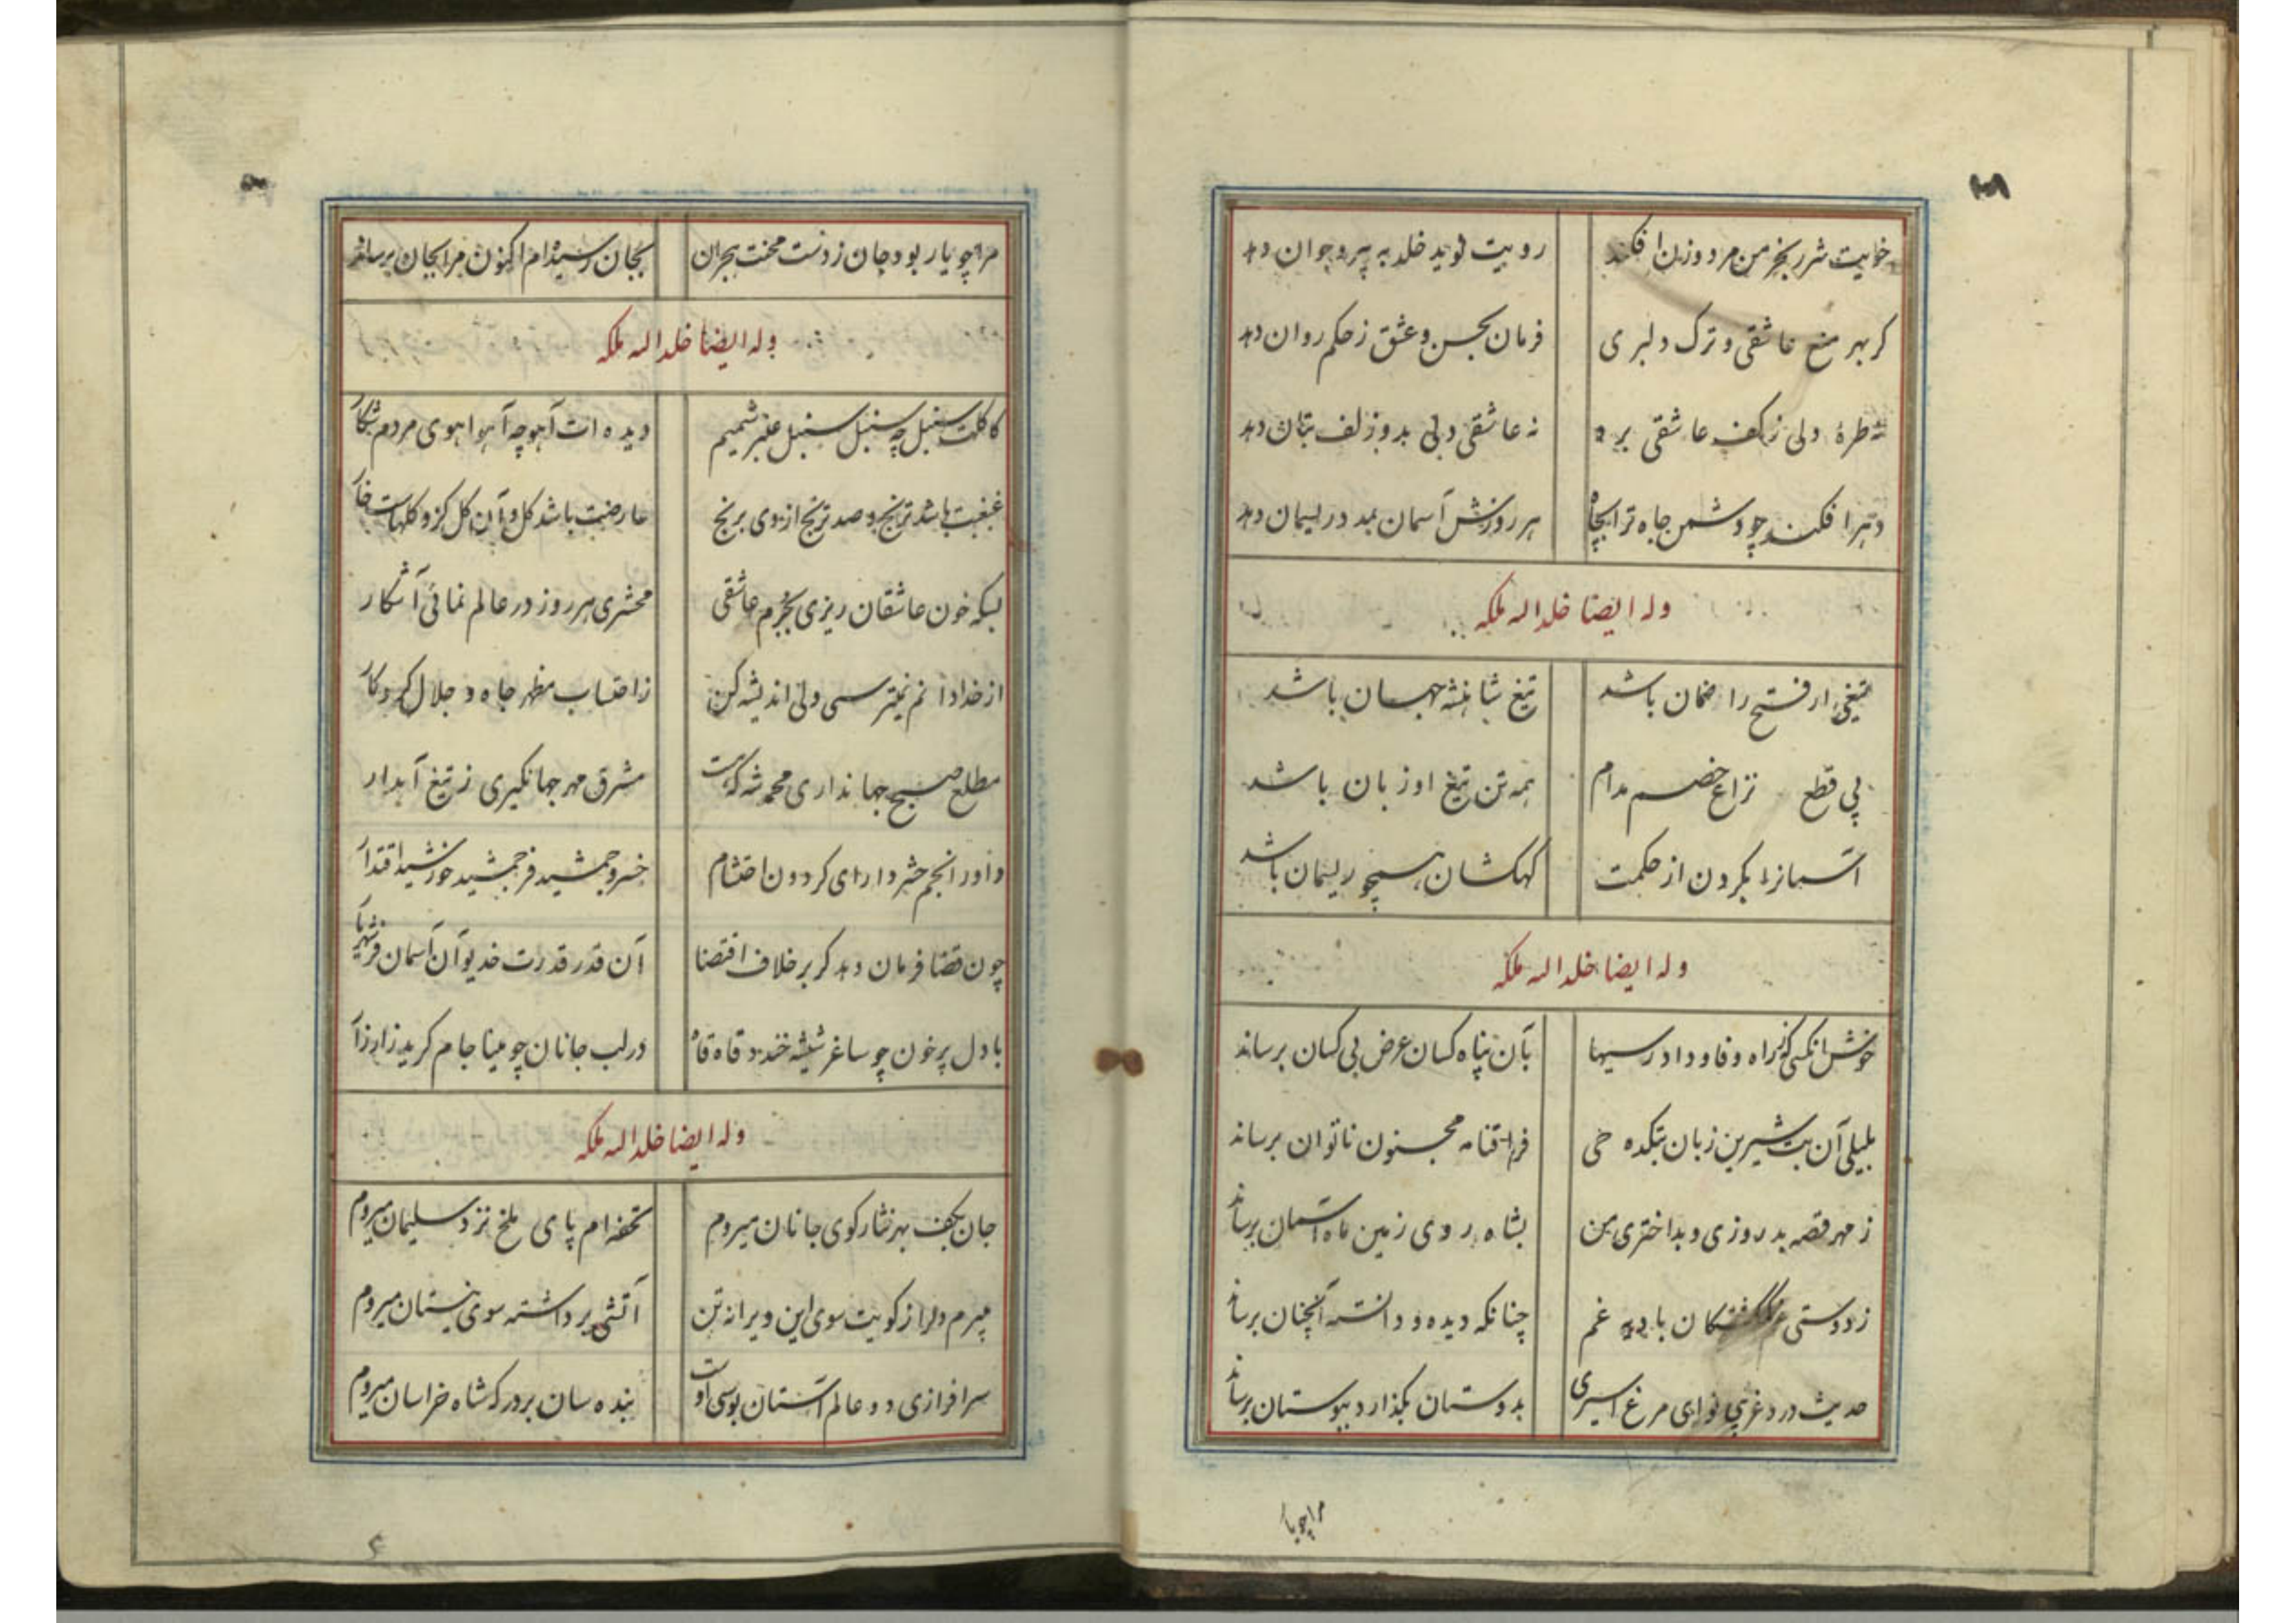 خویت شرر بخرمن مرد و زن افکند رویت نوید خلد به پیر و جوان دهد
کر بهر منع عاشقی و ترک دلبری فرمان بحسن و عشق ز حکم روان دهد
نه طرهٔ دلی ز کف عاشقی برد نه عاشقی دلی بدو زلف بتان دهد
دهر افکند چو دشمن جاه ترا بچاه هر روزش آسمان بمدد ریسمان دهد
وله ایضا خلد الله ملکه
تیغی ار فتح را ضمان باشد تیغ شاهنشه جهان باشد
پی قطع نزاع خصم مدام همه تن تیغ او زبان باشد
آسمانرا بکردن از حکمت کهکشان همچو ریسمان باشد
وله ایضا خلد الله ملکه
خوش آنکسی که ز راه وفا و دادرسیها بآن پناه کسان عرض بی کسان برساند
بلیلی آن بت شیرین زبان بتکده حی فراقنامه مجنون ناتوان برساند
ز مهر قصه بد روزی و بد اختری من بشاه روی زمین ماه آسمان برساند
ز دوستی غم کمکشتکان بادیه غم چنانکه دیده و دانسته آنچنان برساند
حدیث درد غریبی نوای مرغ اسیری بدوستان بکذارد ببوستان برساند
مرا چو یا
مرا چو یار بود جان ز دست محنت هجران بجان رسیده‌ام اکنون مرا بجان برساند
وله ایضا خلد الله ملکه
کاکلت سنبل چه سنبل سنبل عنبر شمیم دیده ات آهو چه آهو آهوی مردم شکار
غبغبت باشد ترنج و صد ترنج از وی برنج عارضت باشد کل و آن کل کزو کلهاست خار
بسکه خون عاشقان ریزی بجرم عاشقی محشری هر روز در عالم نمائی آشکار
از خدا دانم نمیترسی ولی اندیشه کن ز احتساب مظهر جاه و جلال کردکار
مطلع صبح جهانداری محمد شه که هست مشرق مهر جهانکیری ز تیغ آبدار
داور انجم حشر دارای کردون احتشام خسرو جمشید فر جمشید خورشید اقتدار
چون قضا فرمان دهد کر بر خلاف اقتضا آن قدر قدرت خدیو آن آسمان فر شهریار
با دل پر خون چو ساغر شیشه خندد قاه قاه در لب جانان چو مینا جام کرید زار زار
وله ایضا خلد الله ملکه
جان بکف بهر نثار کوی جانان میروم تحفه ام پای ملخ نزد سلیمان میروم
میبرم دلرا ز کویت سوی این ویرانه تن آتشی برداشته سوی نیستان میروم
سرافرازی دو عالم آستان بوسی اوست بنده سان بر درکه شاه خراسان میروم